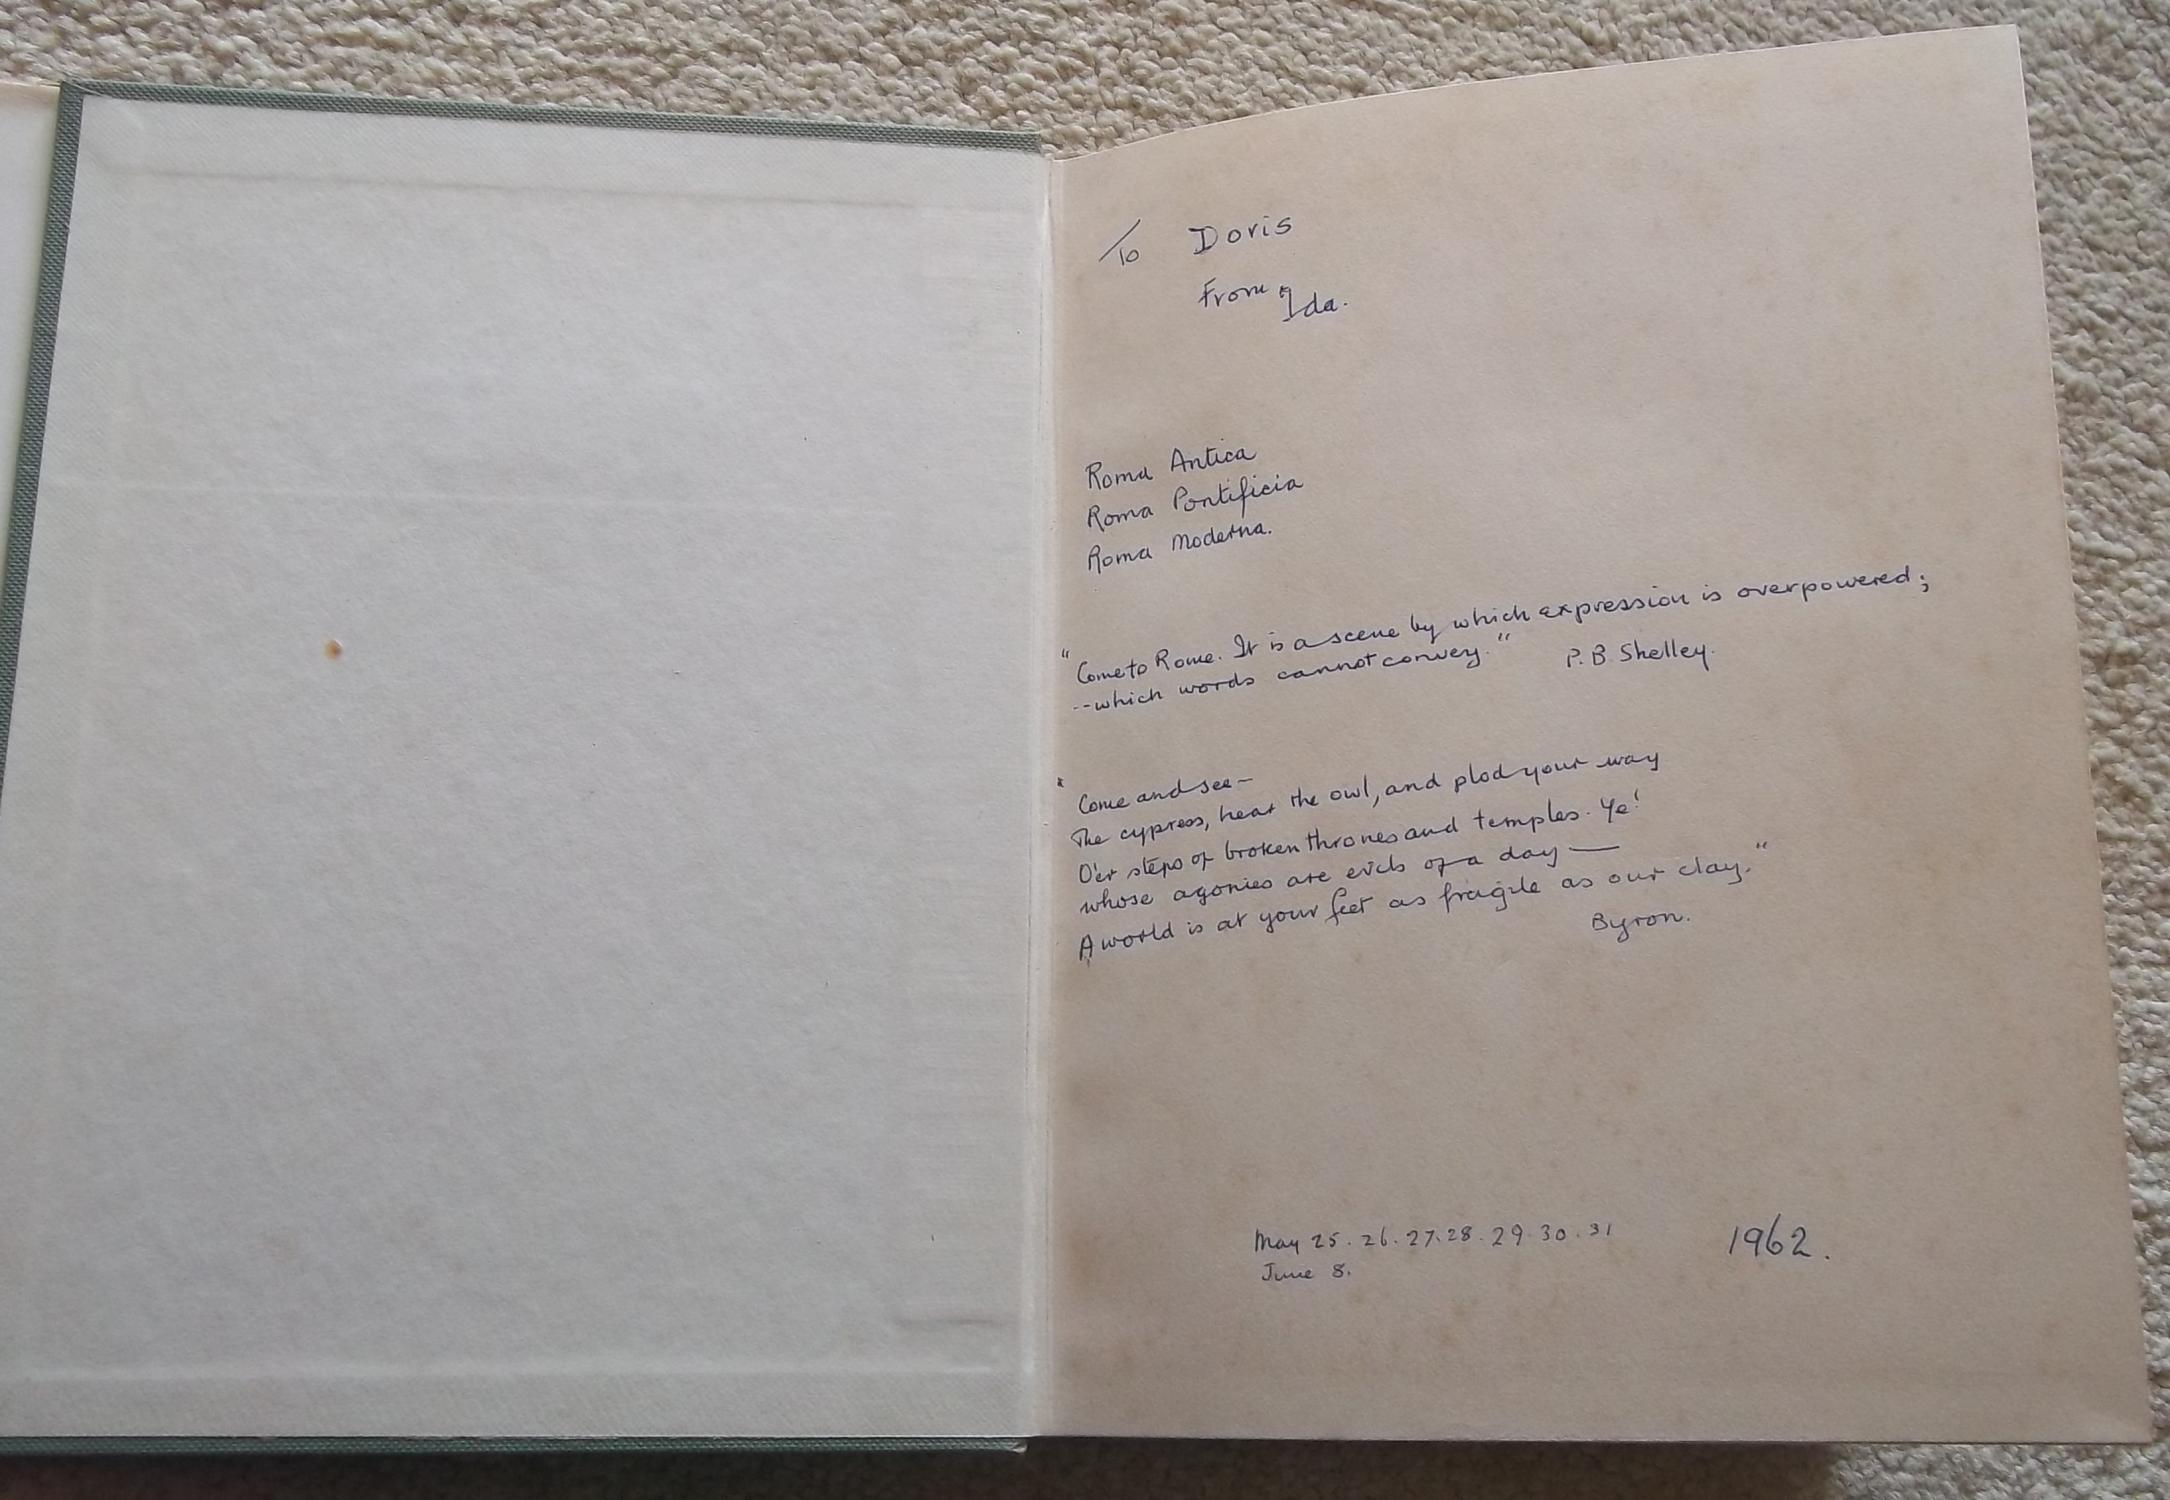 To Doris
From Ida.
Roma Antica
Roma Pontificia
Roma Moderna.
"Come to Rome. It is a scene by which expression is overpowered;
--which words cannot convey." P.B. Shelley.
"Come and see—
The cypress, hear the owl, and plod your way
O'er steps of broken thrones and temples. Ye!
whose agonies are evils of a day —
A world is at your feet as fragile as our clay."
Byron.
May 25. 26. 27. 28. 29. 30. 31 1962.
June 8.